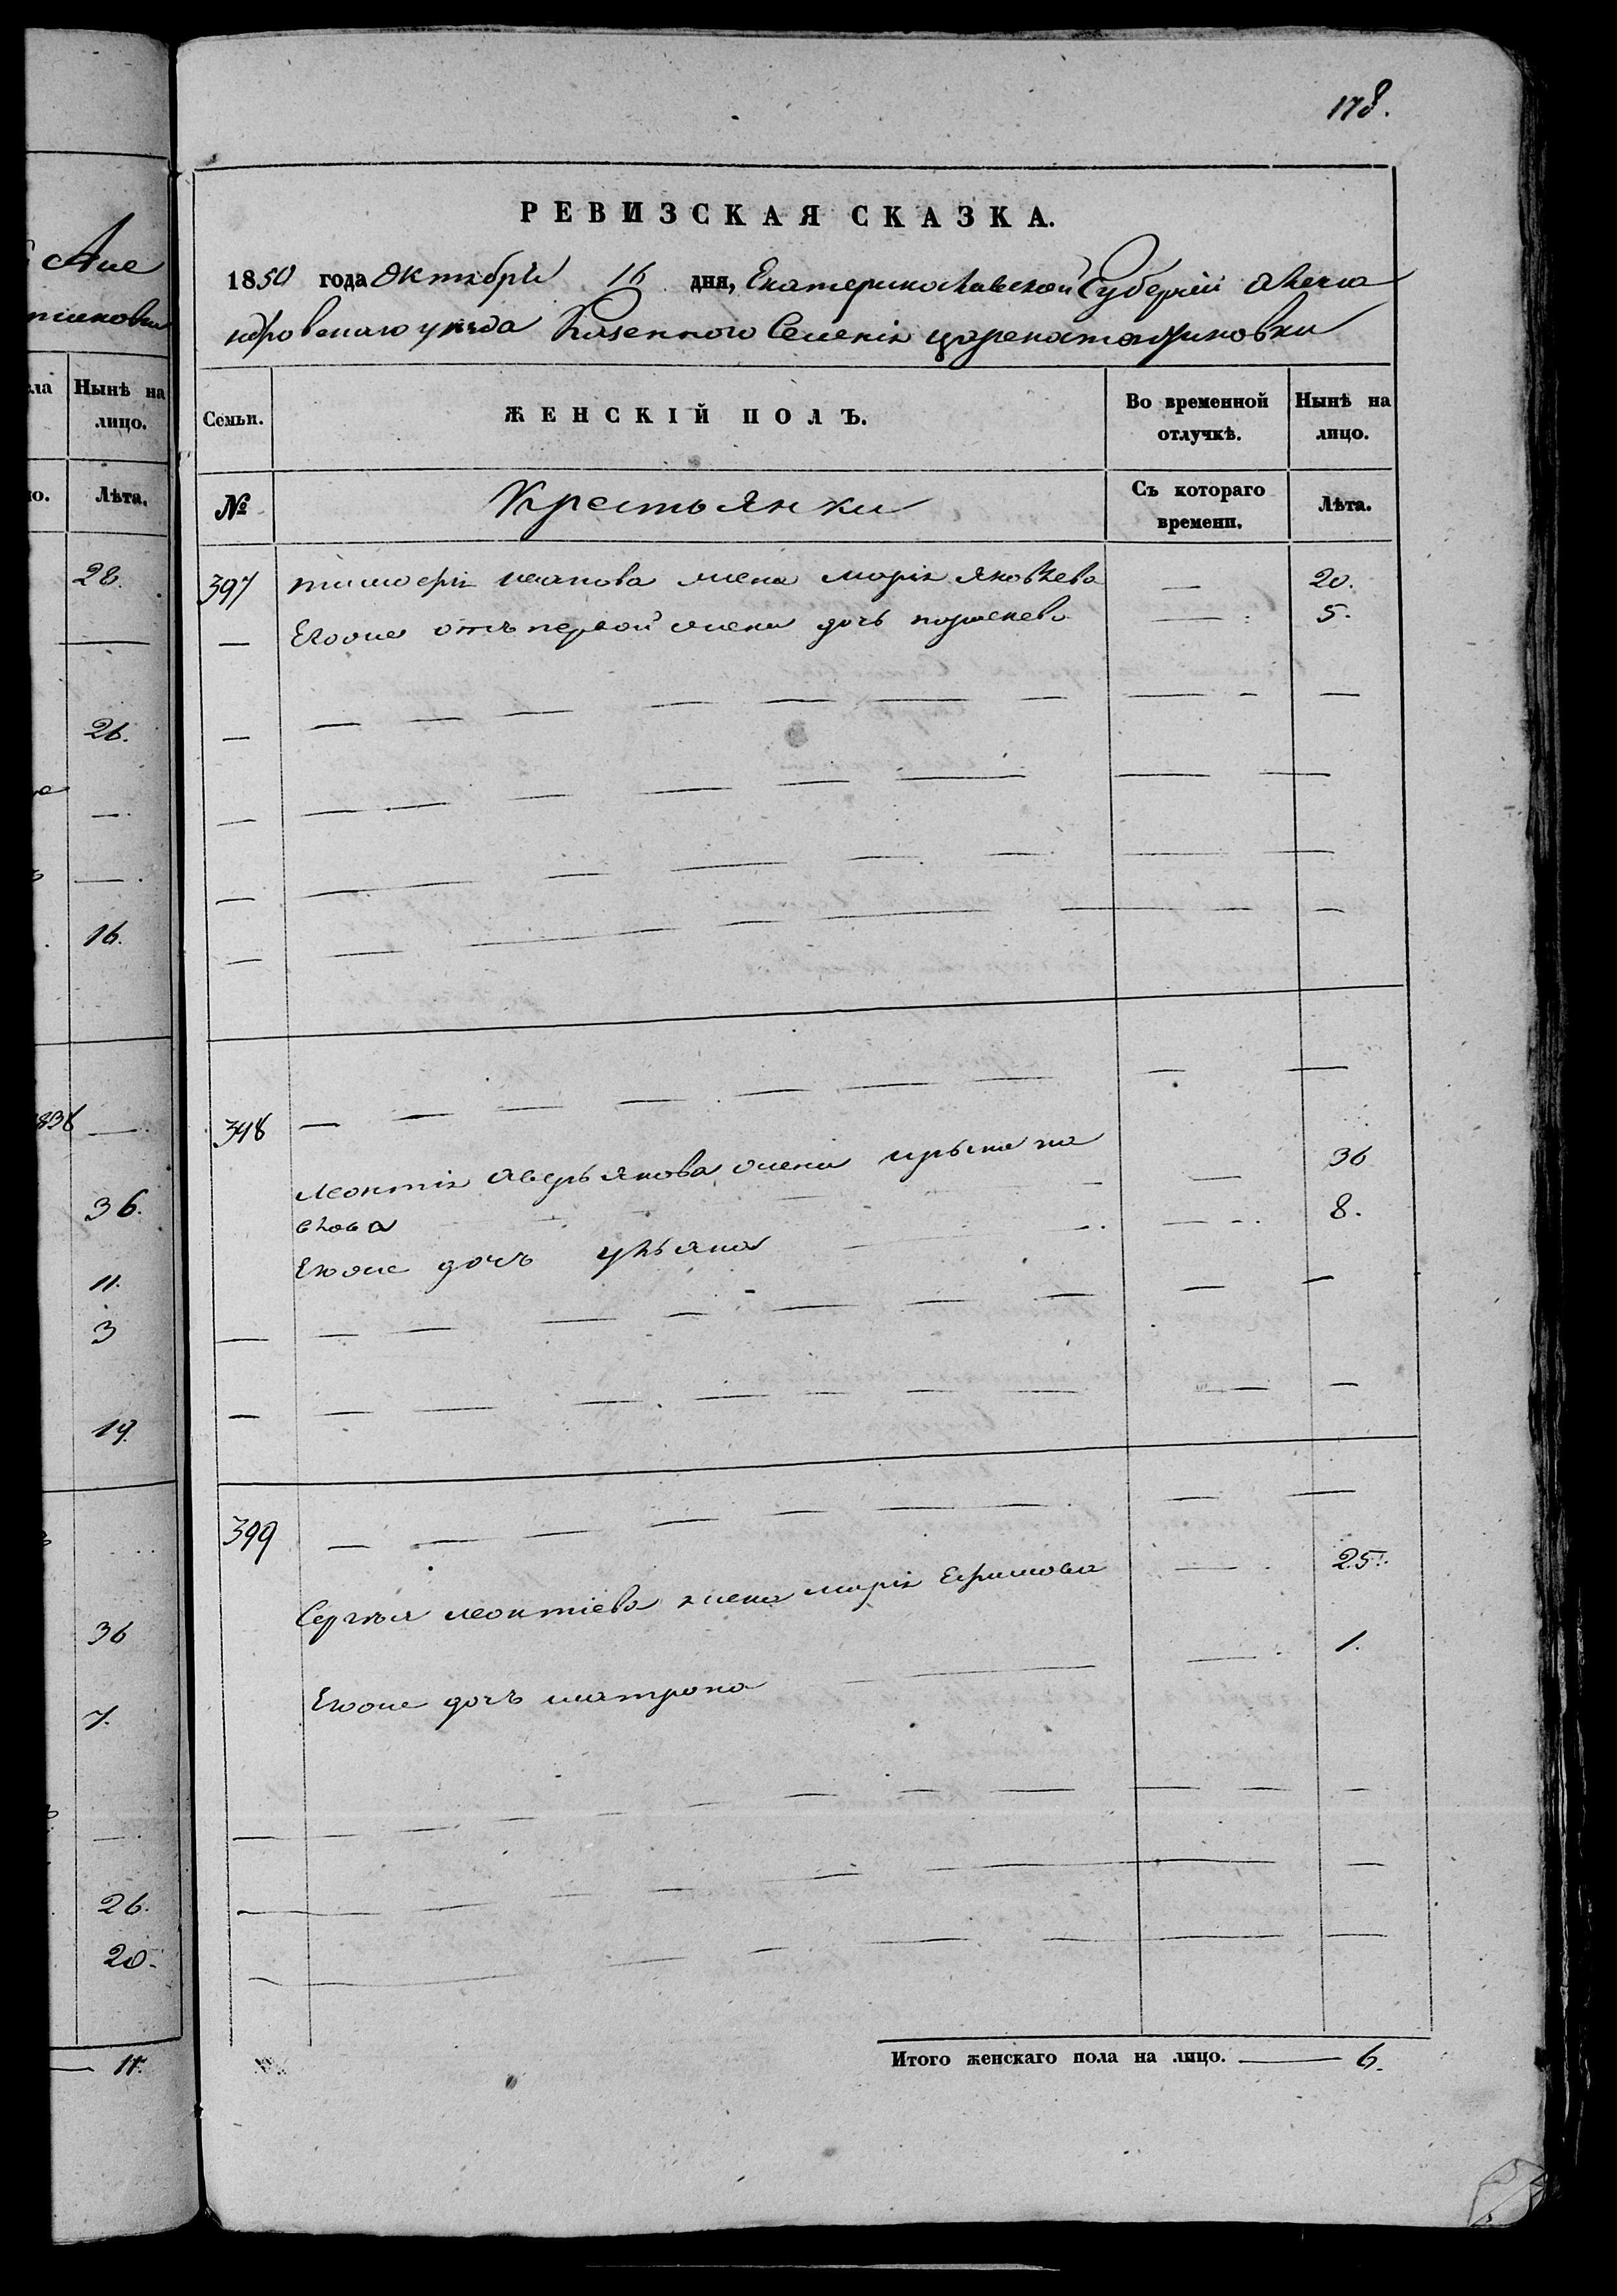 178.
РЕВИЗСКАЯ СКАЗКА.
1850 года Октября 16 дня, Екатеринославской Губерніи Алекса
ндровскаго уѣзда Казенного Селенія
Семьи.
ЖЕНСКІЙ ПОЛЪ.
Во временной отлучкѣ.
Нынѣ на лицо.
№
Крестьянки
Съ котораго времени.
Лѣта.
397 тимофея иванова жена марія яковлева — 20.
— Егоже отъ первой жены дочь — 5.
398
леонтія аверьянова жена 36
Егоже дочь ульяна 8.
399
Сергѣя леонтіева жена марія Ефимова — 25.
Егоже дочь матрона — 1.
Итого женскаго пола на лицо. — 6.
Нынѣ на
лицо.
Лѣта.
28.
26.
16.
36.
11.
3
19.
36
7.
26.
20.
11.